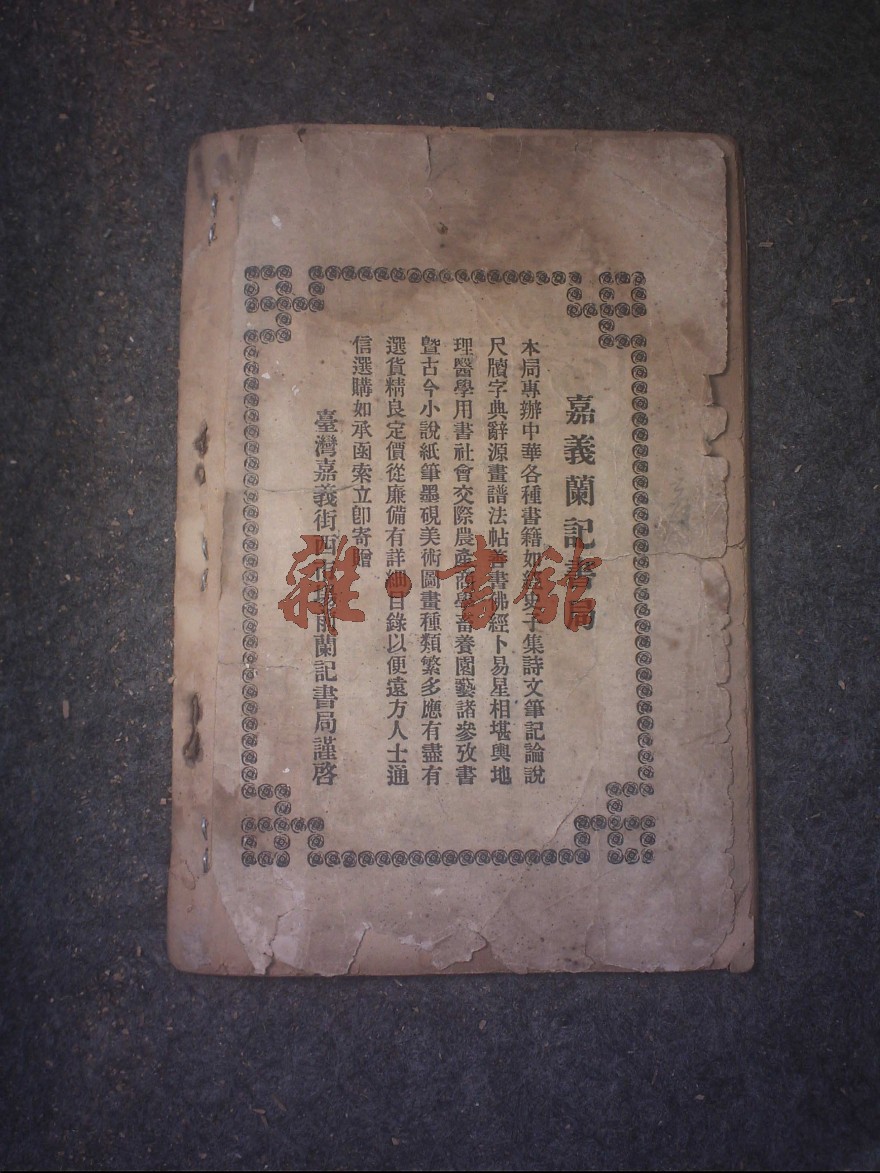 嘉義蘭記書局
本局專辦中華各種書籍如經史子集詩文筆記論說
尺牘字典辭源畫譜法帖善書佛經卜易星相堪輿地
理醫學用書社會交際農產商學畜養園藝諸參攷書
暨古今小說紙筆墨硯美術圖畫種類繁多應有盡有
選貨精良定價從廉備有詳細目錄以便遠方人士通
信選購如承函索立卽寄贈
臺灣嘉義街西市場前蘭記書局謹啓
雜·書館